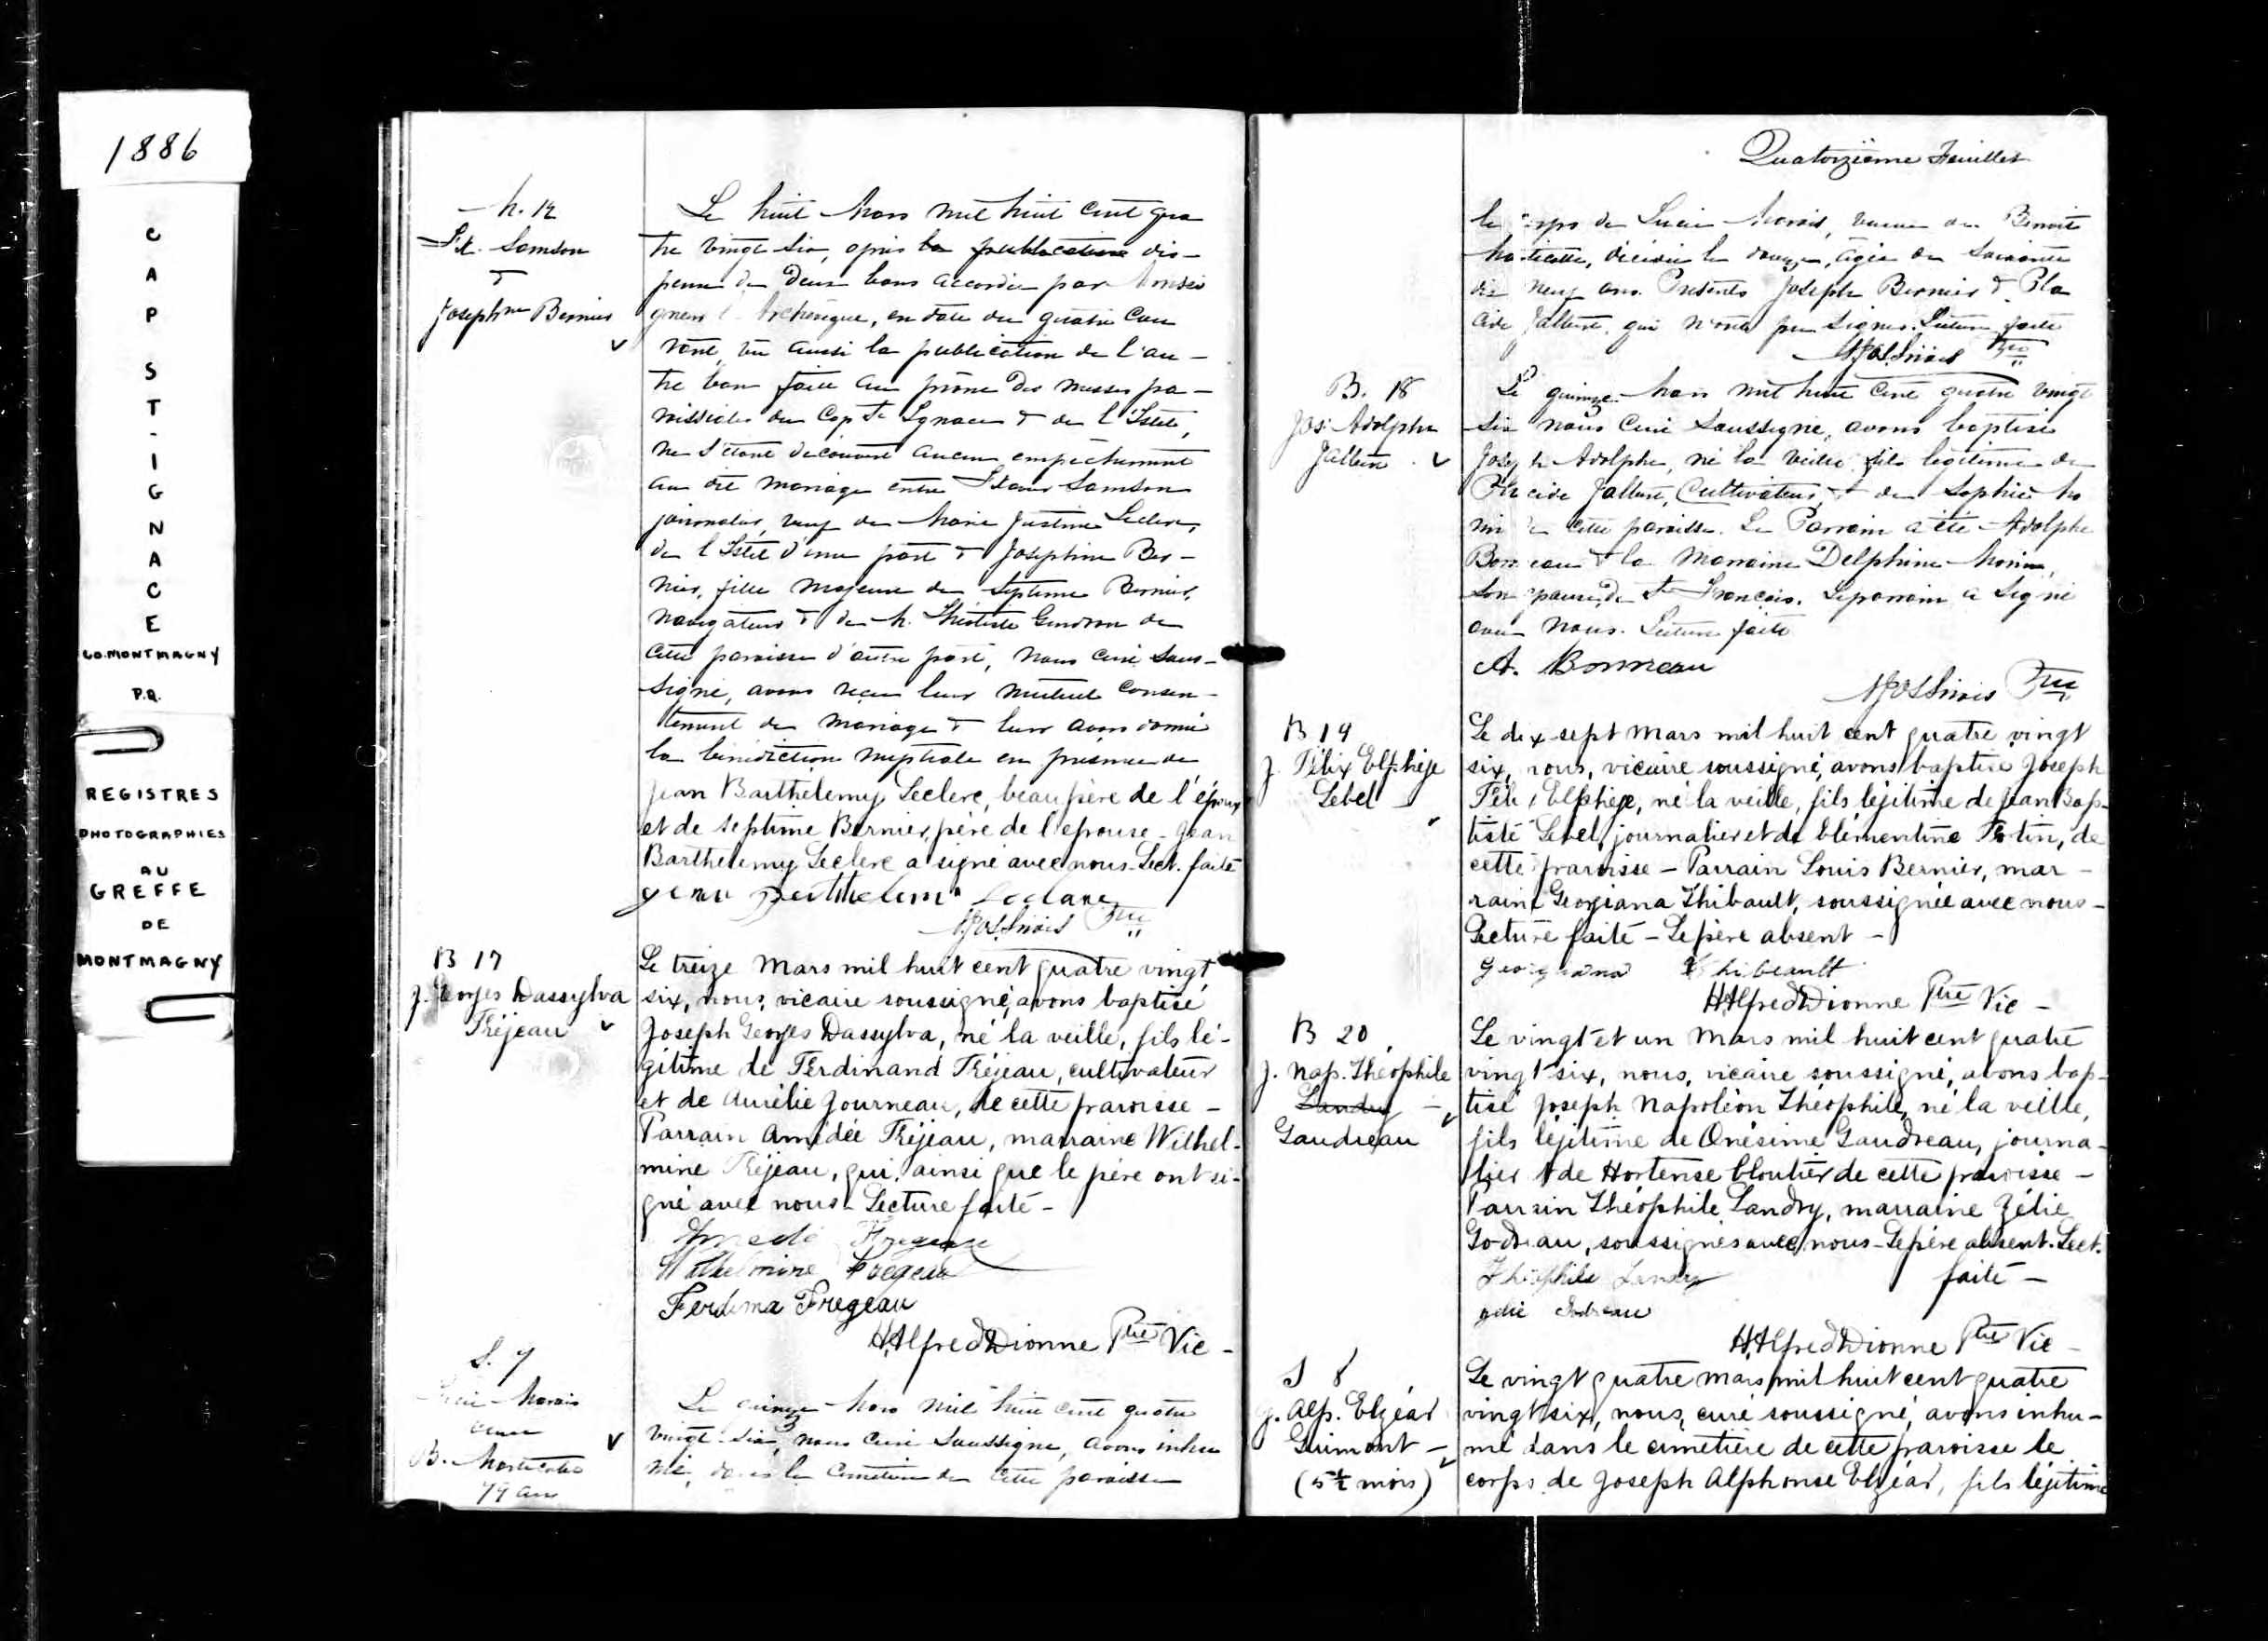 1886
CAP ST-IGNACE
CO. MONTMAGNY
P.Q.
REGISTRES
PHOTOGRAPHIES
AU
GREFFE
DE
MONTMAGNY
Samson
&
Josephine Bernier
Le huit Mars mil huit cent qua
tre vingt six, après la publication dis-
pense de deux bans accordée par Monsei
gneur l'Archevêque, en date du quatre cou
rant, vu aussi la publication de l'au-
tre ban faite au prône des messes pa-
roissiales du Cap St Ignace & de l'Islet,
ne s'étant découvert aucun empêchement
au dit mariage entre Samson
journalier, veuf de Marie Justine Leclerc,
de l'Islet d'une part & Josephine Ber-
nier, fille majeure de Septime Bernier,
navigateur & de M. Théotiste Gendron de
cette paroisse d'autre part, nous curé sous-
signé, avons reçu leur mutuel consen-
tement de mariage & leur avons donné
la bénédiction nuptiale en présence de
Jean Barthélemy Leclerc, beau père de l'époux
et de Septime Bernier, père de l'épouse - Jean
Barthélemy Leclerc a signé avec nous. Lect. faite
Ptre
B 17
J. Georges Dassylva
Fréjeau
Le treize Mars mil huit cent quatre vingt
six, nous, vicaire soussigné, avons baptisé
Joseph Georges Dassylva, né la veille, fils lé-
gitime de Ferdinand Fréjeau, cultivateur
et de Aurélie Journeau, de cette paroisse -
Parrain Amédée Fréjeau, marraine Wilhel-
mine Fréjeau, qui, ainsi que le père ont si-
gné avec nous - Lecture faite -
Amedé Fregeau
Wilhelmine Fregeau
Ferdina Fregeau
H. Alfred Dionne Ptre Vic -
S. 7
Lucie Morais
veuve
B.
79 ans
Le quinze Mars mil huit cent quatre
vingt six, nous curé soussigné, avons inhu
mé, dans le cimetière de cette paroisse
Quatorzième Feuillet
le corps de Lucie Morais, veuve de Benoit
décédée le douze, âgée de soixante
dix neuf ans. Présents Joseph Bernier & Pla
cide Jalbert, qui n'ont pu signer. Lecture faite
Ptre
B. 18
Jos. Adolphe
Jalbert
Le quinze Mars mil huit cent quatre vingt
six nous curé soussigné, avons baptisé
Joseph Adolphe, né la veille, fils légitime de
Placide Jalbert, cultivateur, & de Sophie Mo
rin de cette paroisse. Le Parrain a été Adolphe
Bonneau & la marraine Delphine Morin,
son épouse, de St François. Le parrain a signé
avec nous. Lecture faite
A. Bonneau
Ptre
B 19
J. Félix Elphège
Lebel
Le dix-sept Mars mil huit cent quatre vingt
six, nous, vicaire soussigné, avons baptisé Joseph
Félix Elphège, né la veille, fils léjitime de Jean Bap-
tiste Lebel, journalier et de Clémentine Fortin, de
cette paroisse - Parrain Louis Bernier, mar-
raine Georgiana Thibault, soussignée avec nous -
Lecture faite - Le père absent -
Georgiana Thibeault
H. Alfred Dionne Ptre Vic -
B 20
J. Nap. Théophile
Landry
Gaudreau
Le vingt et un Mars mil huit cent quatre
vingt six, nous, vicaire soussigné, avons bap-
tisé Joseph Napoléon Théophile, né la veille,
fils léjitime de Onésime Gaudreau, journa-
lier & de Hortense Cloutier de cette paroisse -
Parrain Théophile Landry, marraine Zélie
Godreau, soussignés avec nous - Le père absent. Lect.
faite -
Théophile Landry
H. Alfred Dionne Ptre Vic -
S 8
J. Alp. Elzéar
Guimont -
(5 1/2 mois)
Le vingt quatre mars mil huit cent quatre
vingt six, nous, curé soussigné, avons inhu-
mé dans le cimetière de cette paroisse le
corps de Joseph Alphonse Elzéar, fils léjitime